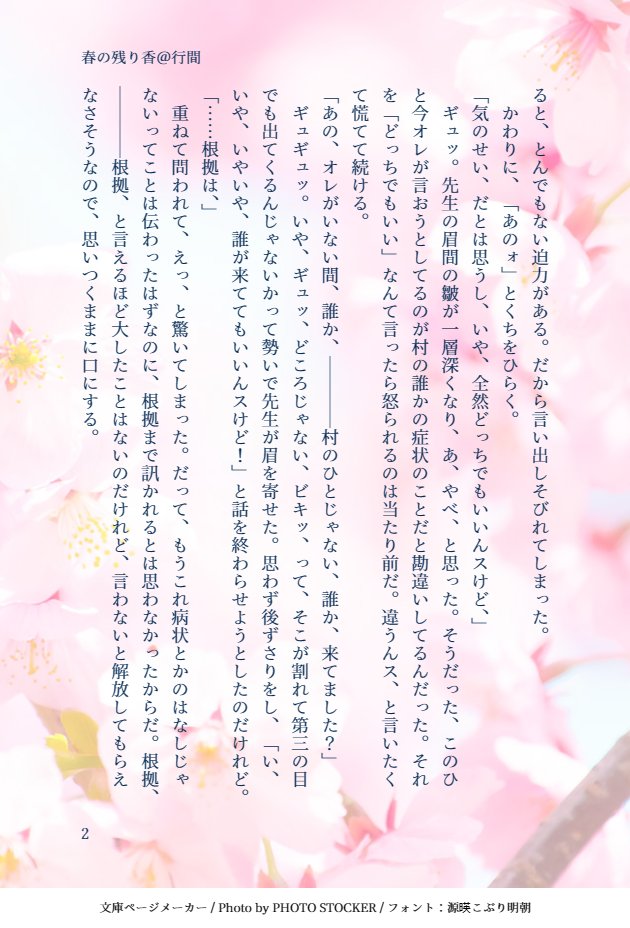 春の残り香＠行間
ると、とんでもない迫力がある。だから言い出しそびれてしまった。
　かわりに、「あのォ」とくちをひらく。
「気のせい、だとは思うし、いや、全然どっちでもいいんスけど、」
　ギュッ。先生の眉間の皺が一層深くなり、あ、やべ、と思った。そうだった、このひ
と今オレが言おうとしてるのが村の誰かの症状のことだと勘違いしてるんだった。それ
を「どっちでもいい」なんて言ったら怒られるのは当たり前だ。違うんス、と言いたく
て慌てて続ける。
「あの、オレがいない間、誰か、――――村のひとじゃない、誰か、来てました？」
　ギュギュッ。いや、ギュッ、どころじゃない、ビキッ、って、そこが割れて第三の目
でも出てくるんじゃないかって勢いで先生が眉を寄せた。思わず後ずさりをし、「い、
いや、いやいや、誰が来ててもいいんスけど！」と話を終わらせようとしたのだけれど。
「……根拠は、」
　重ねて問われて、えっ、と驚いてしまった。だって、もうこれ病状とかのはなしじゃ
ないってことは伝わったはずなのに、根拠まで訊かれるとは思わなかったからだ。根拠、
――――根拠、と言えるほど大したことはないのだけれど、言わないと解放してもらえ
なさそうなので、思いつくままに口にする。
2
文庫ページメーカー / Photo by PHOTO STOCKER / フォント：源暎こぶり明朝